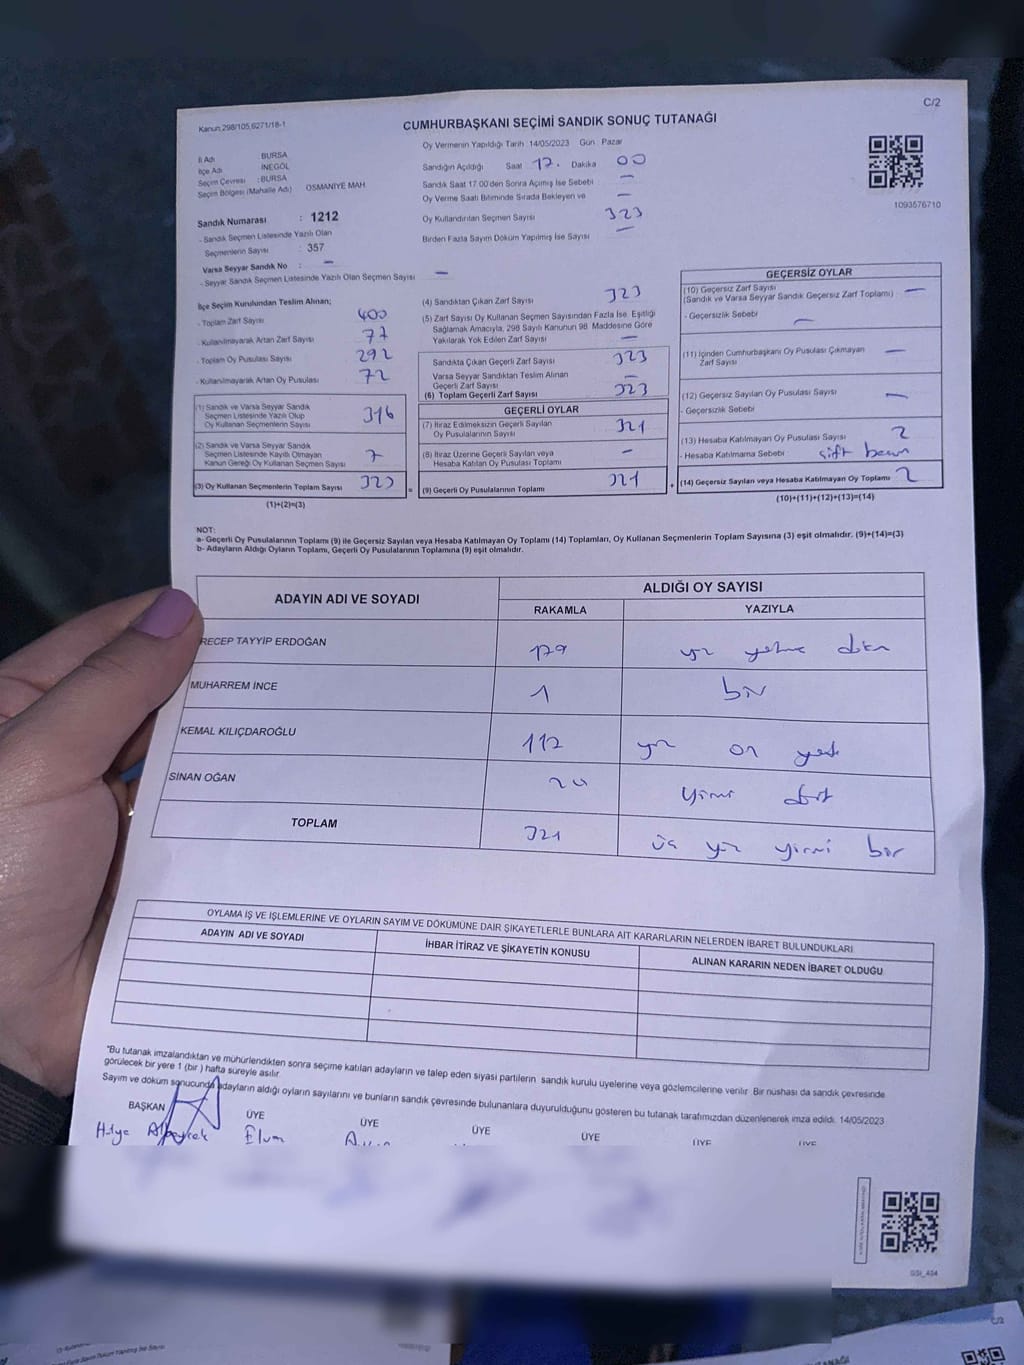 C/2
Kanun:298/105,6271/18-1
CUMHURBAŞKANI SEÇİMİ SANDIK SONUÇ TUTANAĞI
İl Adı BURSA
İlçe Adı İNEGÖL
Seçim Çevresi : BURSA
Seçim Bölgesi (Mahalle Adı) OSMANİYE MAH
Sandık Numarası : 1212
- Sandık Seçmen Listesinde Yazılı Olan
Seçmenlerin Sayısı : 357
Varsa Seyyar Sandık No : –
- Seyyar Sandık Seçmen Listesinde Yazılı Olan Seçmen Sayısı –
Oy Vermenin Yapıldığı Tarih 14/05/2023 Gün Pazar
Sandığın Açıldığı Saat 17. Dakika 00
Sandık Saat 17.00'den Sonra Açılmış İse Sebebi –
Oy Verme Saati Bitiminde Sırada Bekleyen ve –
Oy Kullandırılan Seçmen Sayısı 323
Birden Fazla Sayım Döküm Yapılmış İse Sayısı –
1093576710
İlçe Seçim Kurulundan Teslim Alınan;
- Toplam Zarf Sayısı 400
- Kullanılmayarak Artan Zarf Sayısı 77
- Toplam Oy Pusulası Sayısı 292
- Kullanılmayarak Artan Oy Pusulası 72
(1) Sandık ve Varsa Seyyar Sandık
Seçmen Listesinde Yazılı Olup
Oy Kullanan Seçmenlerin Sayısı 316
(2) Sandık ve Varsa Seyyar Sandık
Seçmen Listesinde Kayıtlı Olmayan
Kanun Gereği Oy Kullanan Seçmen Sayısı 7
(3) Oy Kullanan Seçmenlerin Toplam Sayısı 323
(1)+(2)=(3)
=
(4) Sandıktan Çıkan Zarf Sayısı 323
(5) Zarf Sayısı Oy Kullanan Seçmen Sayısından Fazla İse Eşitliği
Sağlamak Amacıyla, 298 Sayılı Kanunun 98. Maddesine Göre
Yakılarak Yok Edilen Zarf Sayısı –
Sandıkta Çıkan Geçerli Zarf Sayısı 323
Varsa Seyyar Sandıktan Teslim Alınan
Geçerli Zarf Sayısı –
(6) Toplam Geçerli Zarf Sayısı 323
GEÇERLİ OYLAR
(7) İtiraz Edilmeksizin Geçerli Sayılan
Oy Pusulalarının Sayısı 321
(8) İtiraz Üzerine Geçerli Sayılan veya
Hesaba Katılan Oy Pusulası Toplamı –
(9) Geçerli Oy Pusulalarının Toplamı 321
+
GEÇERSİZ OYLAR
(10) Geçersiz Zarf Sayısı
(Sandık ve Varsa Seyyar Sandık Geçersiz Zarf Toplamı) –
- Geçersizlik Sebebi –
(11) İçinden Cumhurbaşkanı Oy Pusulası Çıkmayan
Zarf Sayısı –
(12) Geçersiz Sayılan Oy Pusulası Sayısı –
- Geçersizlik Sebebi
(13) Hesaba Katılmayan Oy Pusulası Sayısı 2
- Hesaba Katılmama Sebebi çift
(14) Geçersiz Sayılan veya Hesaba Katılmayan Oy Toplamı 2
(10)+(11)+(12)+(13)=(14)
NOT:
a- Geçerli Oy Pusulalarının Toplamı (9) ile Geçersiz Sayılan veya Hesaba Katılmayan Oy Toplamı (14) Toplamları, Oy Kullanan Seçmenlerin Toplam Sayısına (3) eşit olmalıdır. (9)+(14)=(3)
b- Adayların Aldığı Oyların Toplamı, Geçerli Oy Pusulalarının Toplamına (9) eşit olmalıdır.
ADAYIN ADI VE SOYADI ALDIĞI OY SAYISI
RAKAMLA YAZIYLA
RECEP TAYYİP ERDOĞAN 179 yüz yetmiş dokuz
MUHARREM İNCE 1 bir
KEMAL KILIÇDAROĞLU 117 yüz on yedi
SİNAN OĞAN 24 yirmi dört
TOPLAM 321 üç yüz yirmi bir
OYLAMA İŞ VE İŞLEMLERİNE VE OYLARIN SAYIM VE DÖKÜMÜNE DAİR ŞİKAYETLERLE BUNLARA AİT KARARLARIN NELERDEN İBARET BULUNDUKLARI
ADAYIN ADI VE SOYADI İHBAR İTİRAZ VE ŞİKAYETİN KONUSU ALINAN KARARIN NEDEN İBARET OLDUĞU
*Bu tutanak imzalandıktan ve mühürlendikten sonra seçime katılan adayların ve talep eden siyasi partilerin sandık kurulu üyelerine veya gözlemcilerine verilir. Bir nüshası da sandık çevresinde
görülecek bir yere 1 (bir ) hafta süreyle asılır.
Sayım ve döküm sonucunda adayların aldığı oyların sayılarını ve bunların sandık çevresinde bulunanlara duyurulduğunu gösteren bu tutanak tarafımızdan düzenlenerek imza edildi. 14/05/2023
BAŞKAN ÜYE ÜYE ÜYE ÜYE ÜYE ÜYE
Hülya Albayrak
GSI_404
C/2